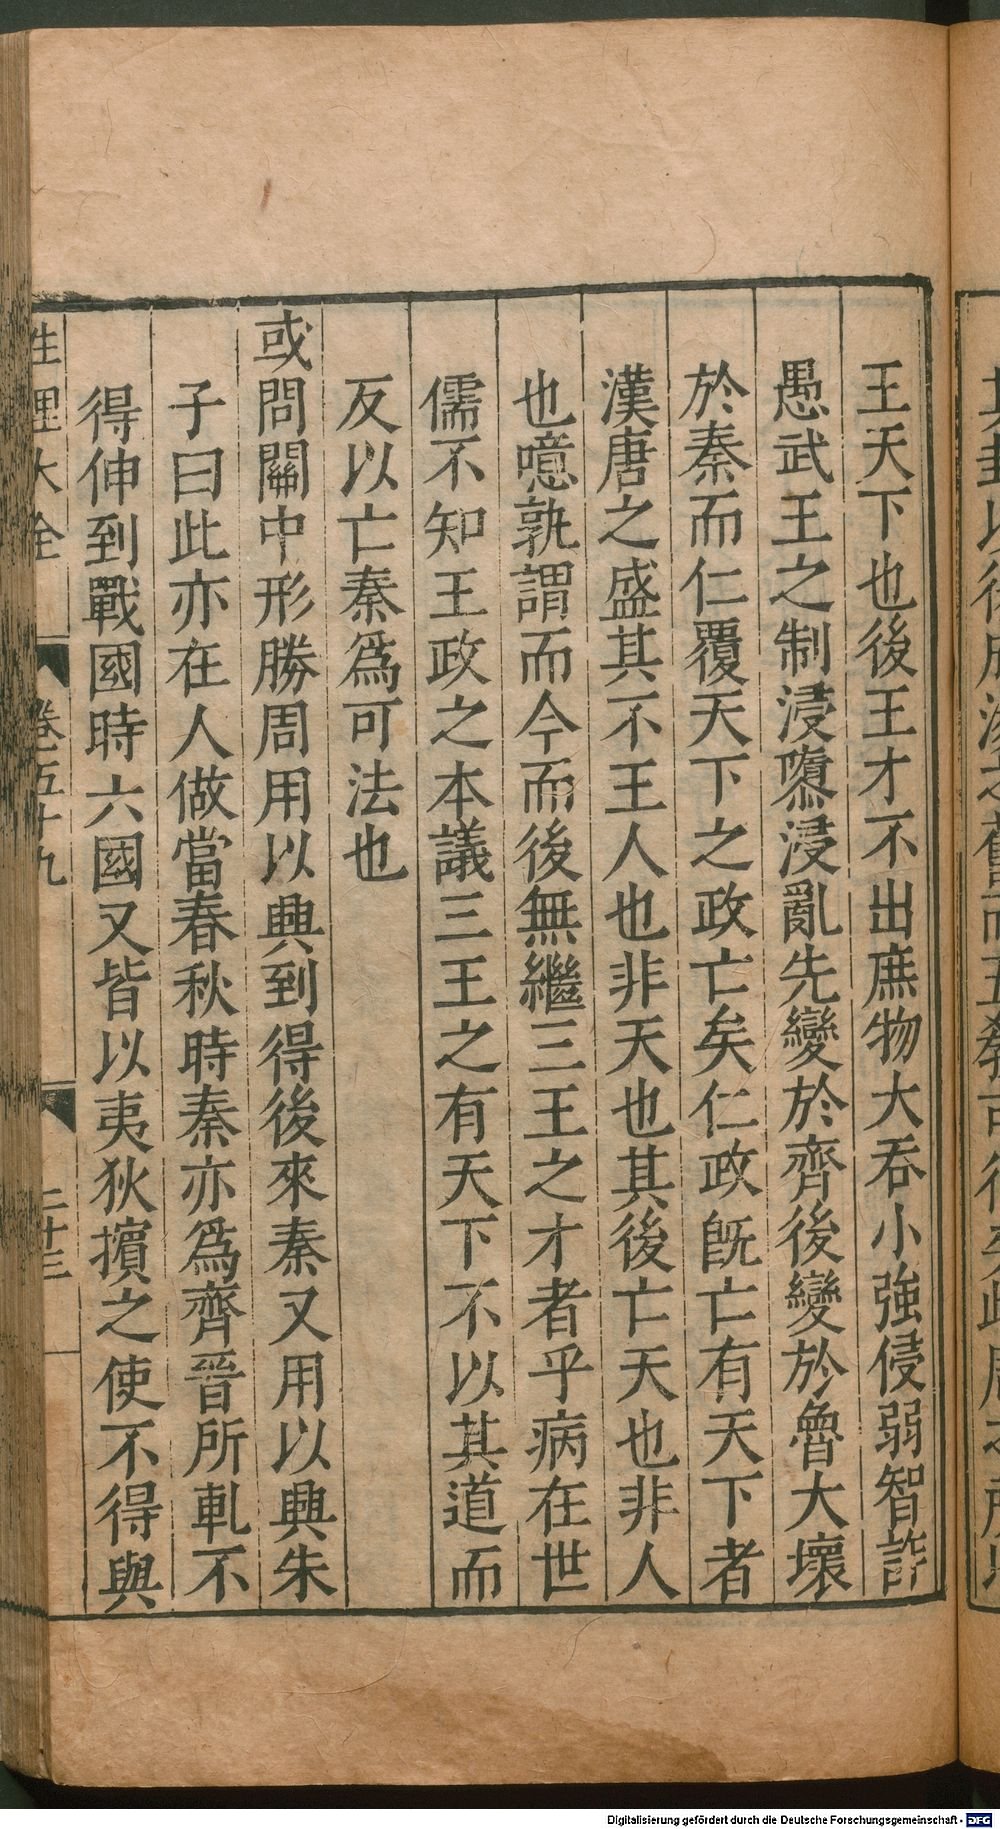 王天下也後王才不出庶物大吞小強侵弱智詐
愚武王之制浸隳浸亂先變於齊後變於魯大壞
於秦而仁覆天下之政亡矣仁政旣亡有天下者
漢唐之盛其不王人也非天也其後亡天也非人
也噫孰謂而今而後無繼三王之才者乎病在世
儒不知王政之本議三王之有天下不以其道而
反以亡秦爲可法也
或問關中形勝周用以興到得後來秦又用以興朱
子曰此亦在人做當春秋時秦亦爲齊晉所軋不
得伸到戰國時六國又皆以夷狄擯之使不得與
性理大全 卷五十九 二十三
Digitalisierung gefördert durch die Deutsche Forschungsgemeinschaft - DFG